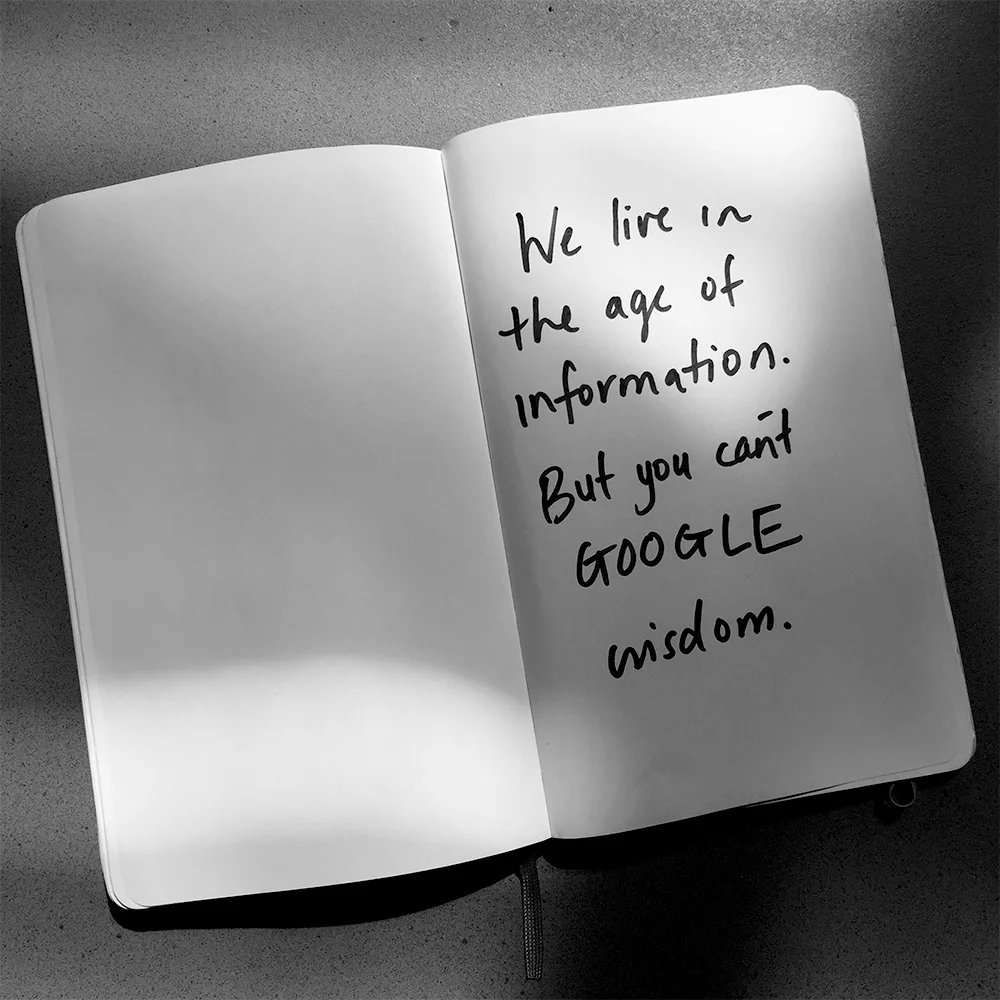 We live in
the age of
information.
But you can't
GOOGLE
wisdom.